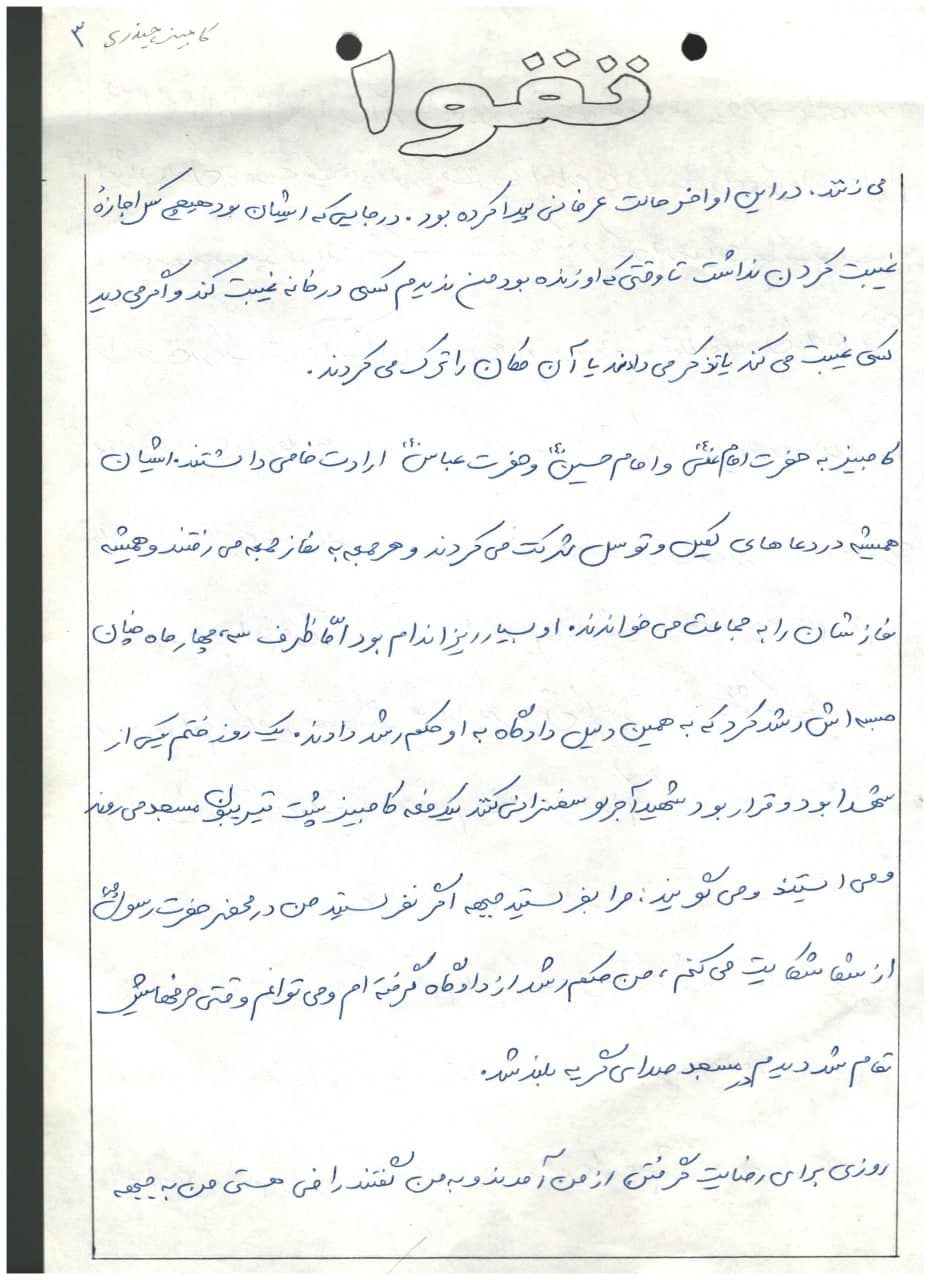 ۳
کامبیز حیدری
تقوا
می زنند. در این اواخر حالت عرفانی پیدا کرده بود. در جایی که ایشان بود هیچ کس اجازهٔ
غیبت کردن نداشت تا وقتی که او زنده بود من ندیدم کسی در خانه غیبت کند و اگر می دید
کسی غیبت می کند یا تذکر می دادند یا آن مکان را ترک می کردند.
کامبیز به حضرت امام علی و امام حسین (ع) و حضرت عباس (ع) ارادت خاصی داشتند. ایشان
همیشه در دعاهای کمیل و توسل شرکت می کردند و هر جمعه به نماز جمعه می رفتند و همیشه
نمازشان را به جماعت می خواندند. او بسیار ریز اندام بود امّا ظرف سه، چهار ماه چنان
جسه اش رشد کرد که به همین دلیل دادگاه به او حکم رشد دادند. یک روز ختم یکی از
شهدا بود و قرار بود شهید آجرلو سخنرانی کنند یکدفعه کامبیز پشت تیریبون مسجد می روند
و می ایستند و می گویند: مرا بفرستید جبهه اگر نفرستید من در محضر حضرت رسول (ص)
از شما شکایت می کنم، من حکم رشد از دادگاه گرفته ام و می توانم وقتی حرفهایش
تمام شد دیدم در مسجد صدای گریه بلند شد.
روزی برای رضایت گرفتن از من آمدند و به من گفتند راضی هستی من به جبهه